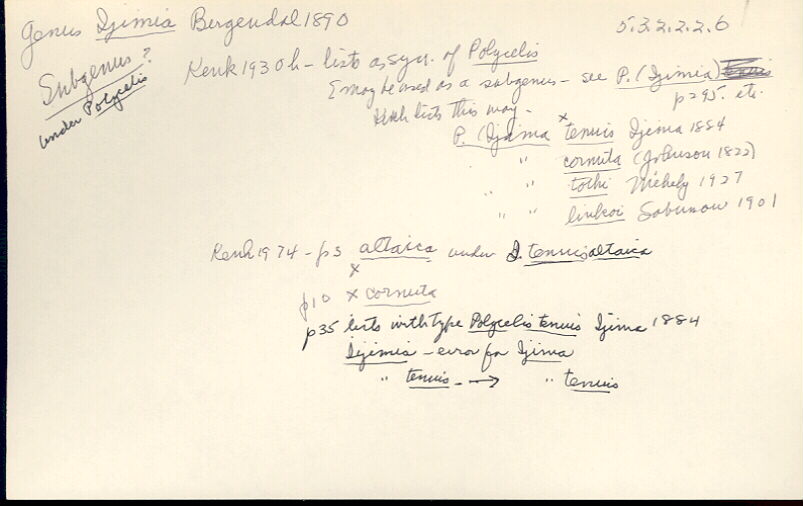 Genus Ijimia Bergendal 1890
5.3.2.2.2.6
Subgenus?
under Polycelis
Kenk 1930b - lists as syn. of Polycelis
& may be used as a subgenus - see P. (Ijimia)
p295. etc.
Kenk lists this way.
P. (Ijimia x tenuis Ijima 1884
" cornuta (Johnson 1822)
" " tothi Méhely 1927
" " linkoi Sabussow 1901
Kenk 1974 - p3 altaica under I. tenuis altaica
x
p10 x cornuta
p35 lists with type Polycelis tenuis Ijima 1884
Ijimia - error for Ijima
" tenuis → " tenuis